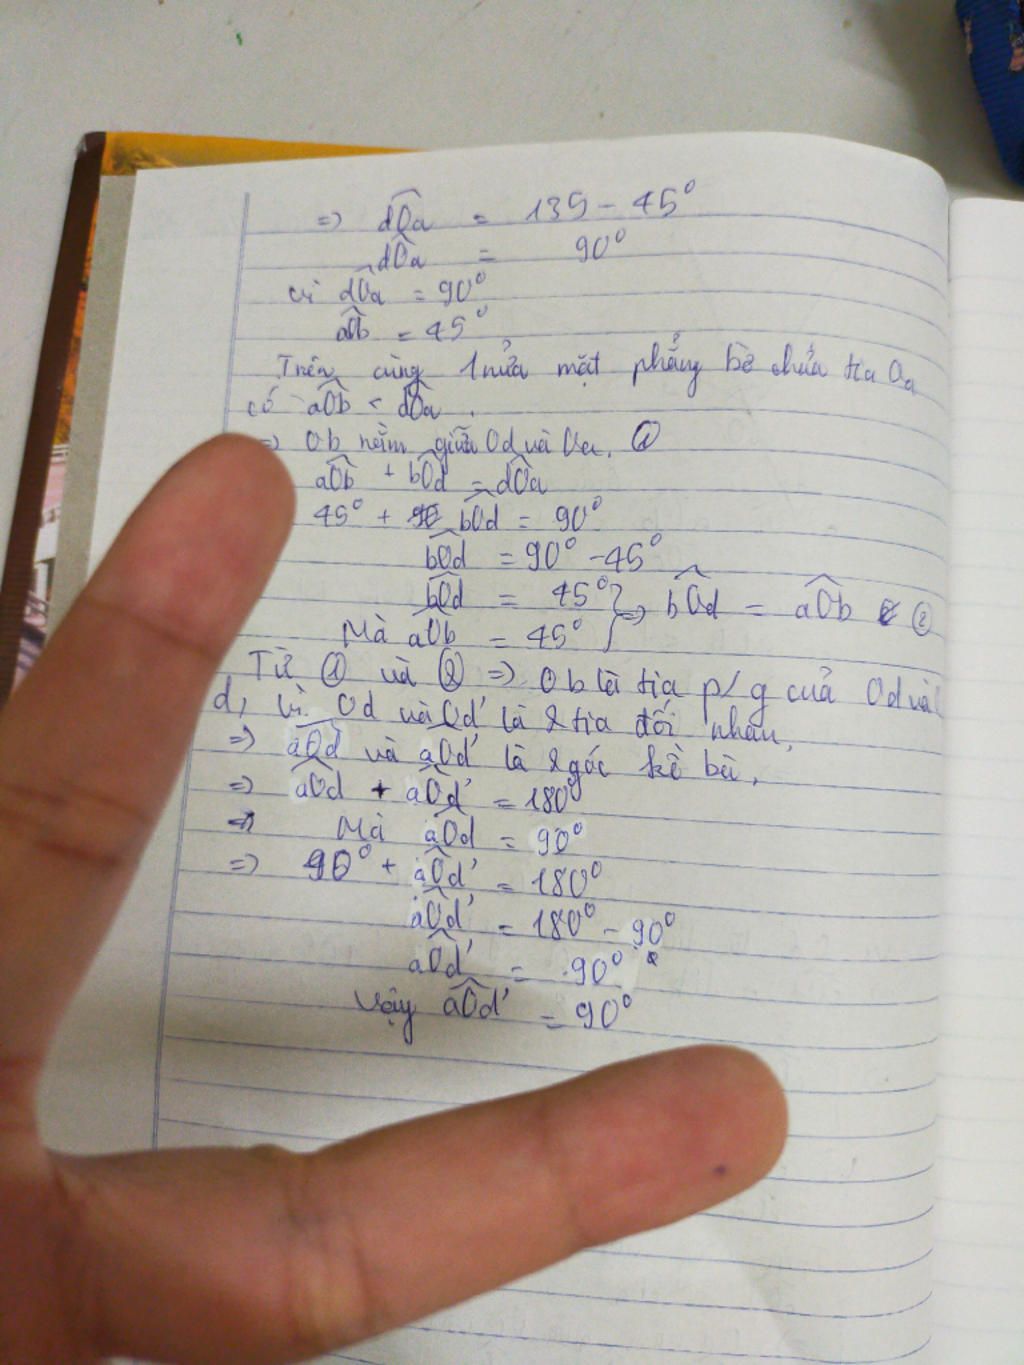 => dÔa = 135 - 45°
dÔa = 90°
Vì dÔa = 90°
aÔb = 45°
Trên cùng 1 nửa mặt phẳng bờ chứa tia Oa
có aÔb < dÔa.
=> Ob nằm giữa Od và Oa. ①
aÔb + bÔd = dÔa
45° + bÔd = 90°
bÔd = 90° - 45°
bÔd = 45° } => bÔd = aÔb ②
Mà aÔb = 45°
Từ ① và ② => Ob là tia p/g của Od và
d, Vì Od và Od' là 2 tia đối nhau,
=> aÔd và aÔd' là 2 góc kề bù,
=> aÔd + aÔd' = 180°
=> Mà aÔd = 90°
=> 90° + aÔd' = 180°
aÔd' = 180° - 90°
aÔd' = 90°
Vậy aÔd' = 90°